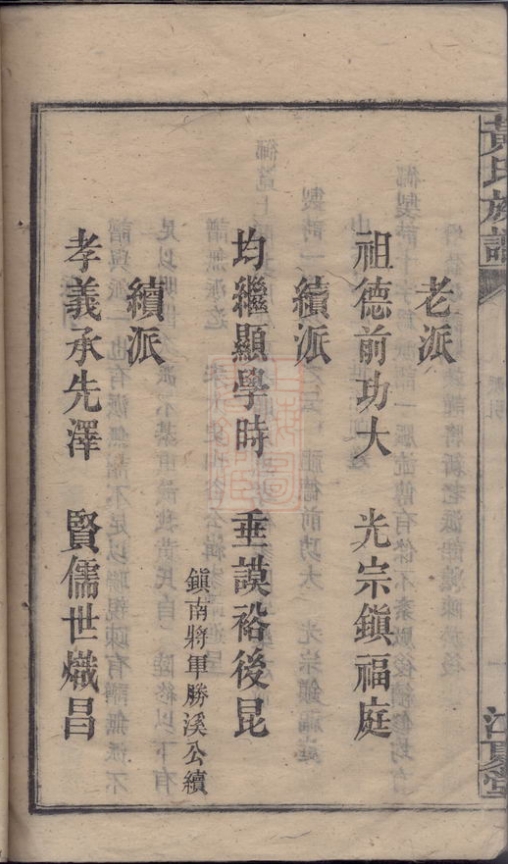 黃氏族譜
江夏堂
老派
祖德前功大 光宗鎮福庭
續派
均繼顯學時 垂謨裕後昆
鎮南將軍勝溪公續
續派
孝義承先澤 賢儒世熾昌